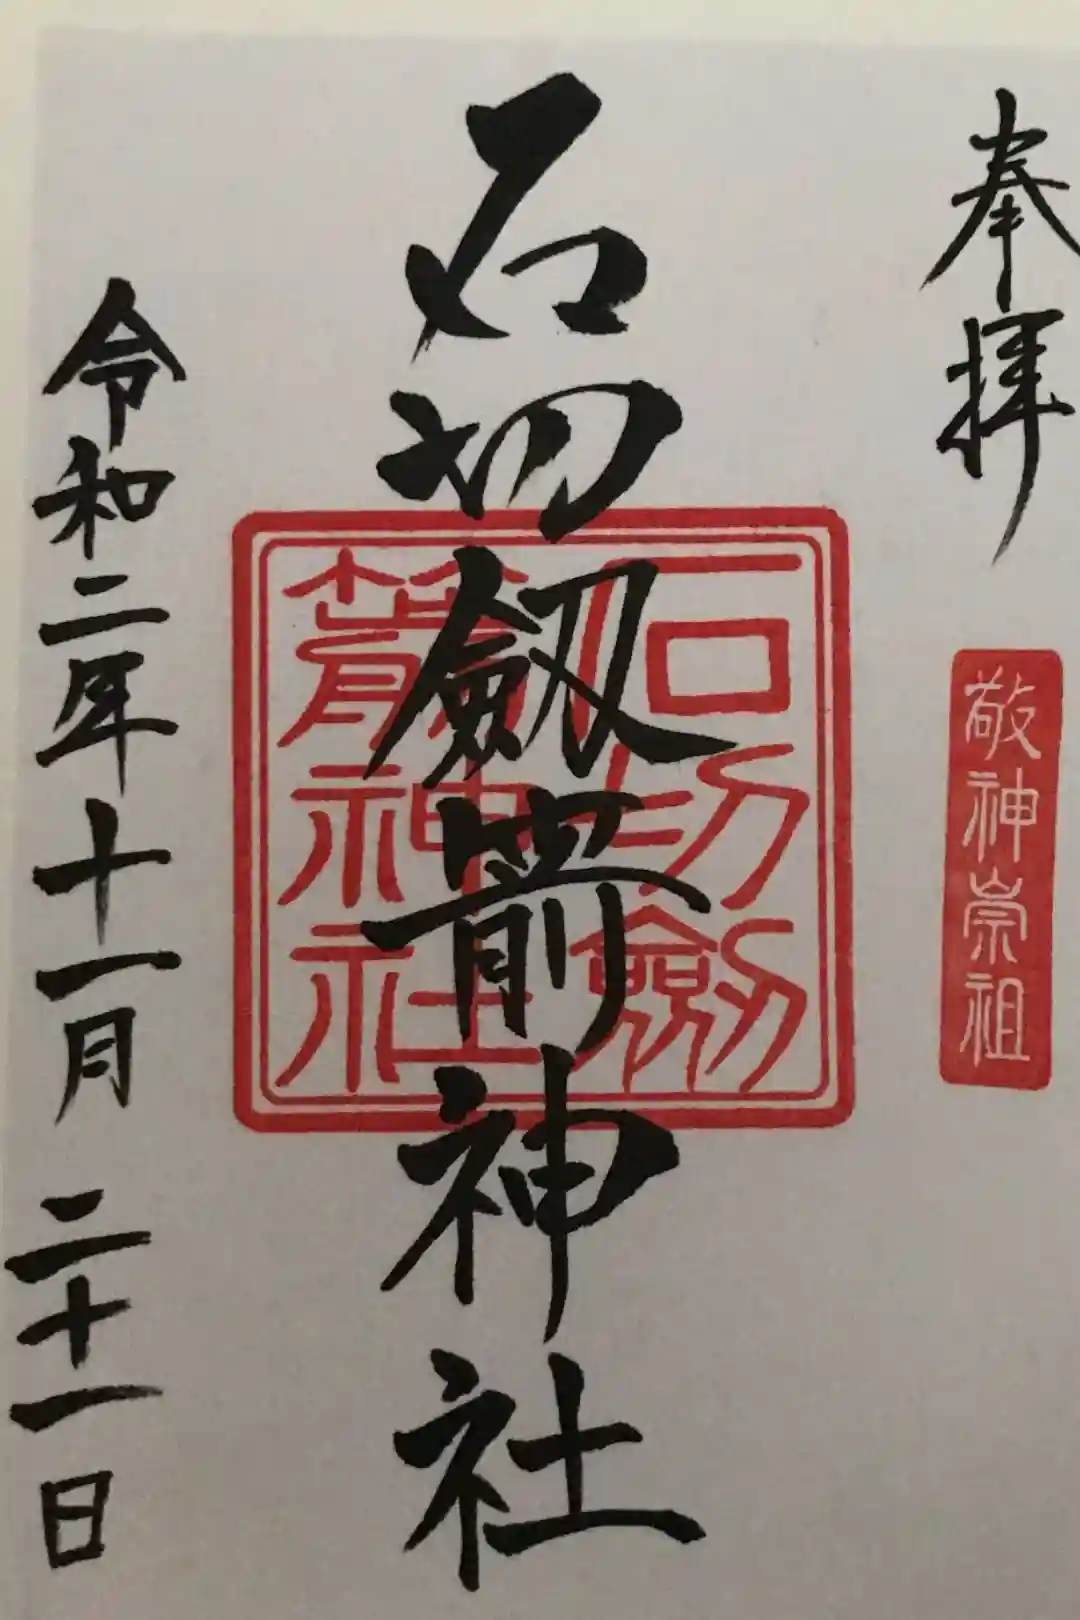 奉拝
敬神崇祖
石切劔箭神社
石切劔
箭神社
令和二年十一月二十一日